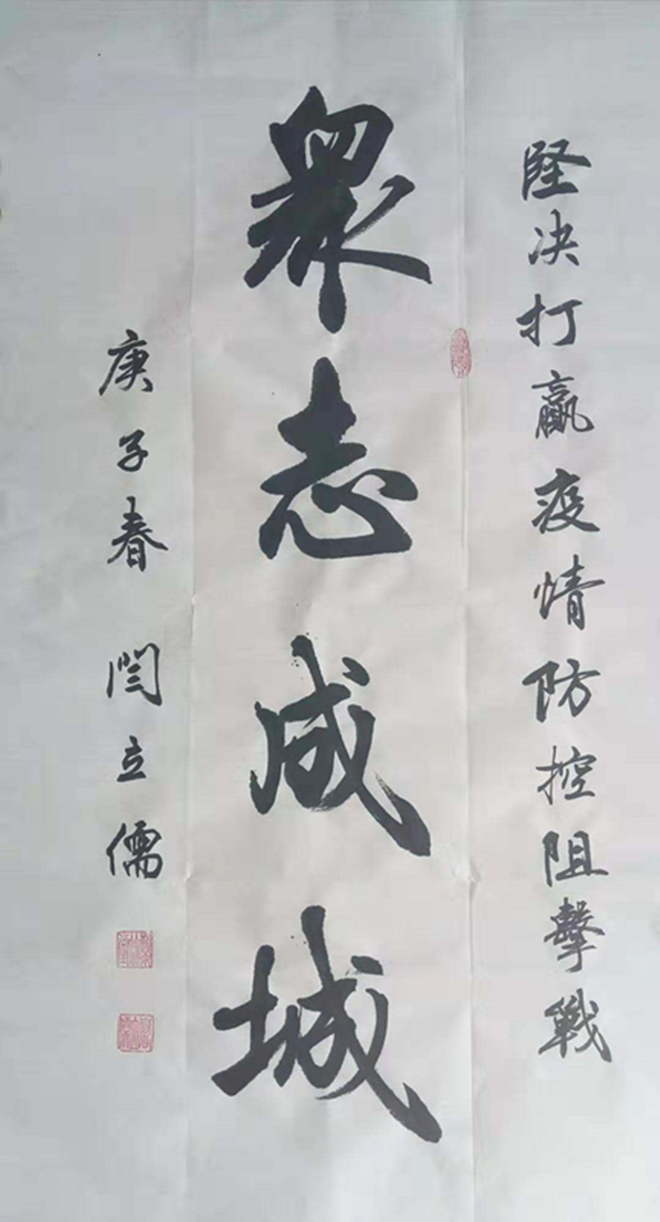 堅决打贏疫情防控阻擊戰
眾志成城
庚子春 闫立儒